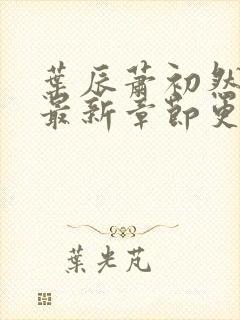 葉辰蕭初然
最新章節更
葉光芃